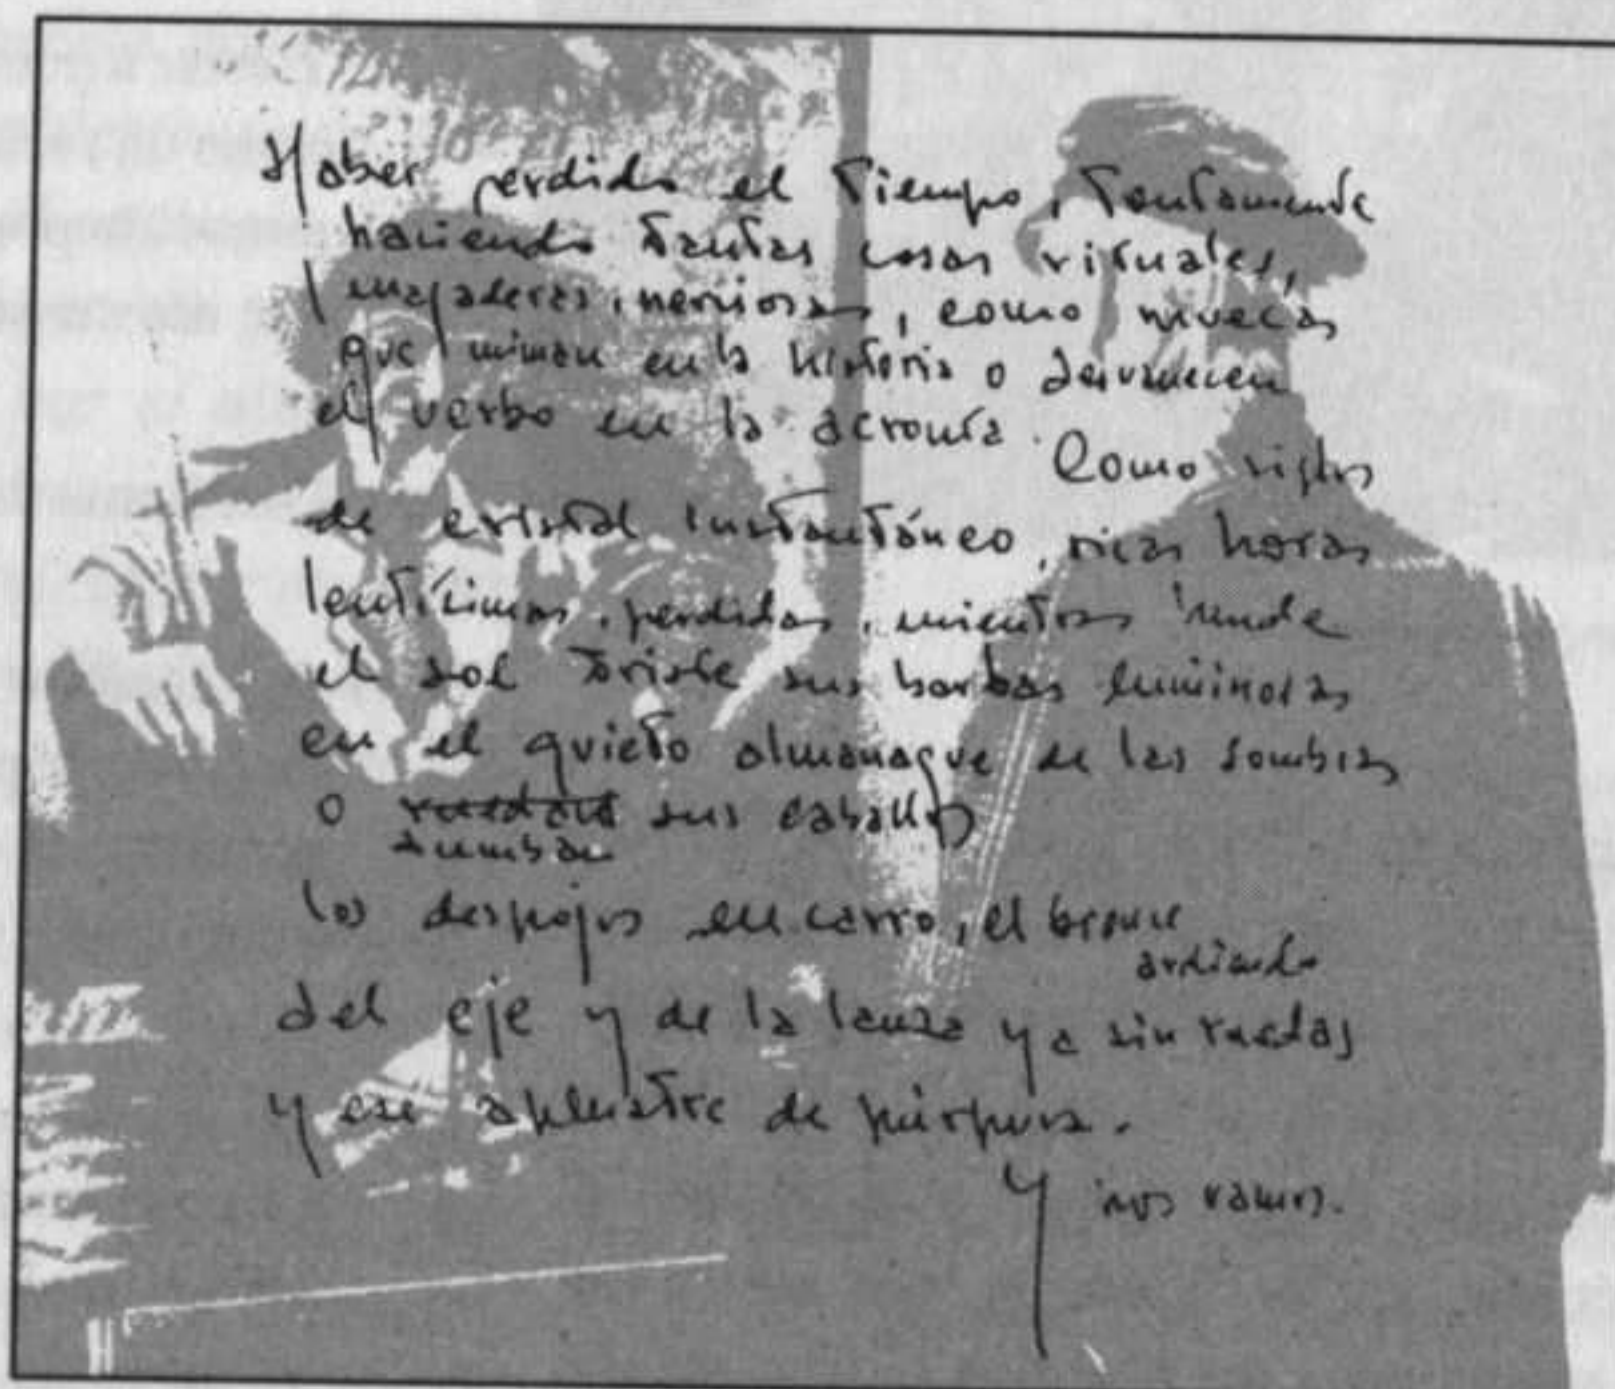 Haber perdido el tiempo, tontamente
haciendo tantas cosas rituales,
majaderas, nerviosas, como muecas
que miman en la historia o desvanecen
el verbo en la acronía. Como siglos
de cristal instantáneo, ricas horas
lentísimas, perdidas, mientras hunde
el sol triste sus barbas luminosas
en el quieto almanaque de las sombras
o sus caballos
tumban
los despojos en carro, el bronce
ardiendo
del eje y de la lanza ya sin ruedas
y ese aplustre de púrpura.
Y nos vamos.